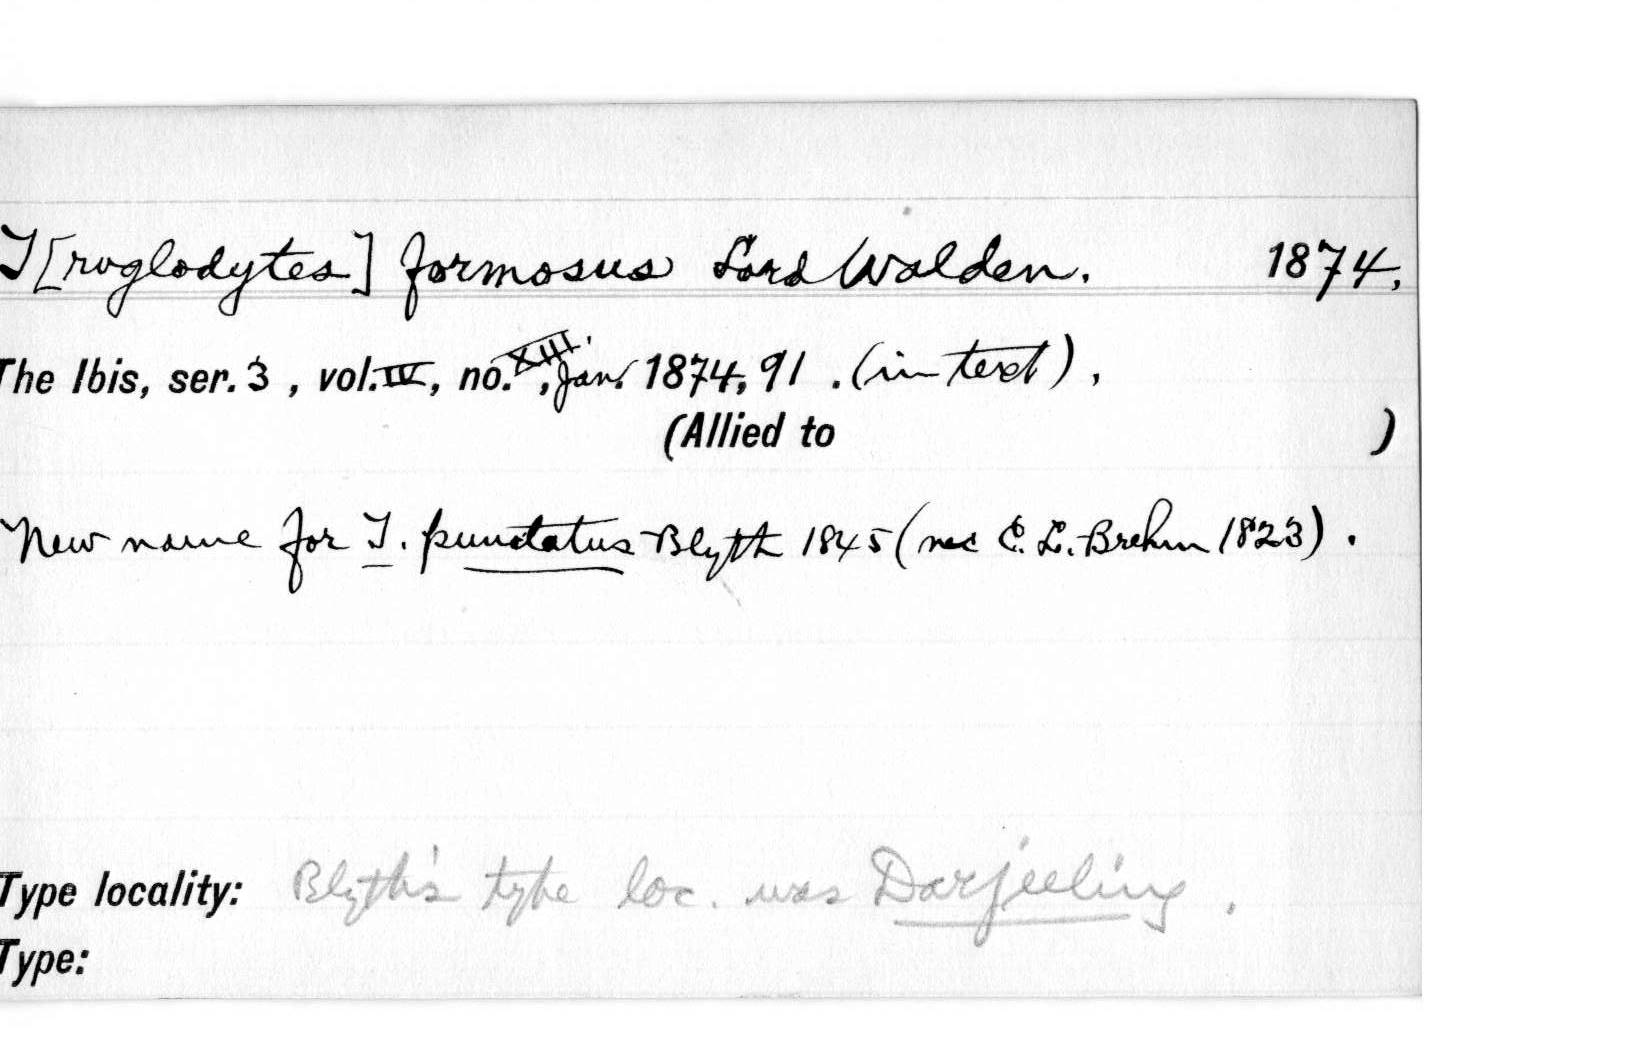 T[roglodytes] formosus Lord Walden. 1874.
The Ibis, ser. 3, vol. IV, no. XIII, Jan. 1874, 91. (in text).
(Allied to )
New name for T. punctatus Blyth 1845 (nec C. L. Brehm 1823).
Type locality: Blyth's type loc. was Darjeeling.
Type: